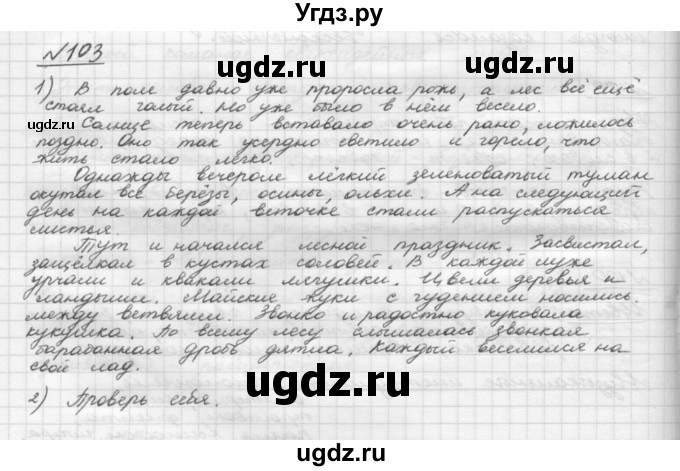 Угдз.ру
№103
1) В поле давно уже проросла рожь, а лес всё ещё
стоял голый. Но уже было в нём весело.
Солнце теперь вставало очень рано, ложилось
поздно. Оно так усердно светило и горело, что
жить стало легко.
Однажды вечером лёгкий зеленоватый туман
окутал все берёзы, осины, ольхи. А на следующий
день на каждой веточке стали распускаться
листья.
Тут и начался лесной праздник. Засвистал,
защёлкал в кустах соловей. В каждой луже
урчали и квакали лягушки. Цвели деревья и
ландыши. Майские жуки с гудением носились
между ветвями. Звонко и радостно куковала
кукушка. По всему лесу слышалась звонкая
барабанная дробь дятла. Каждый веселился на
свой лад.
2) Проверь себя.
ugdz.ru
ugdz.ru
ugdz.ru
ugdz.ru
ugdz.ru
ugdz.ru
ugdz.ru
ugdz.ru
Угдз.ру